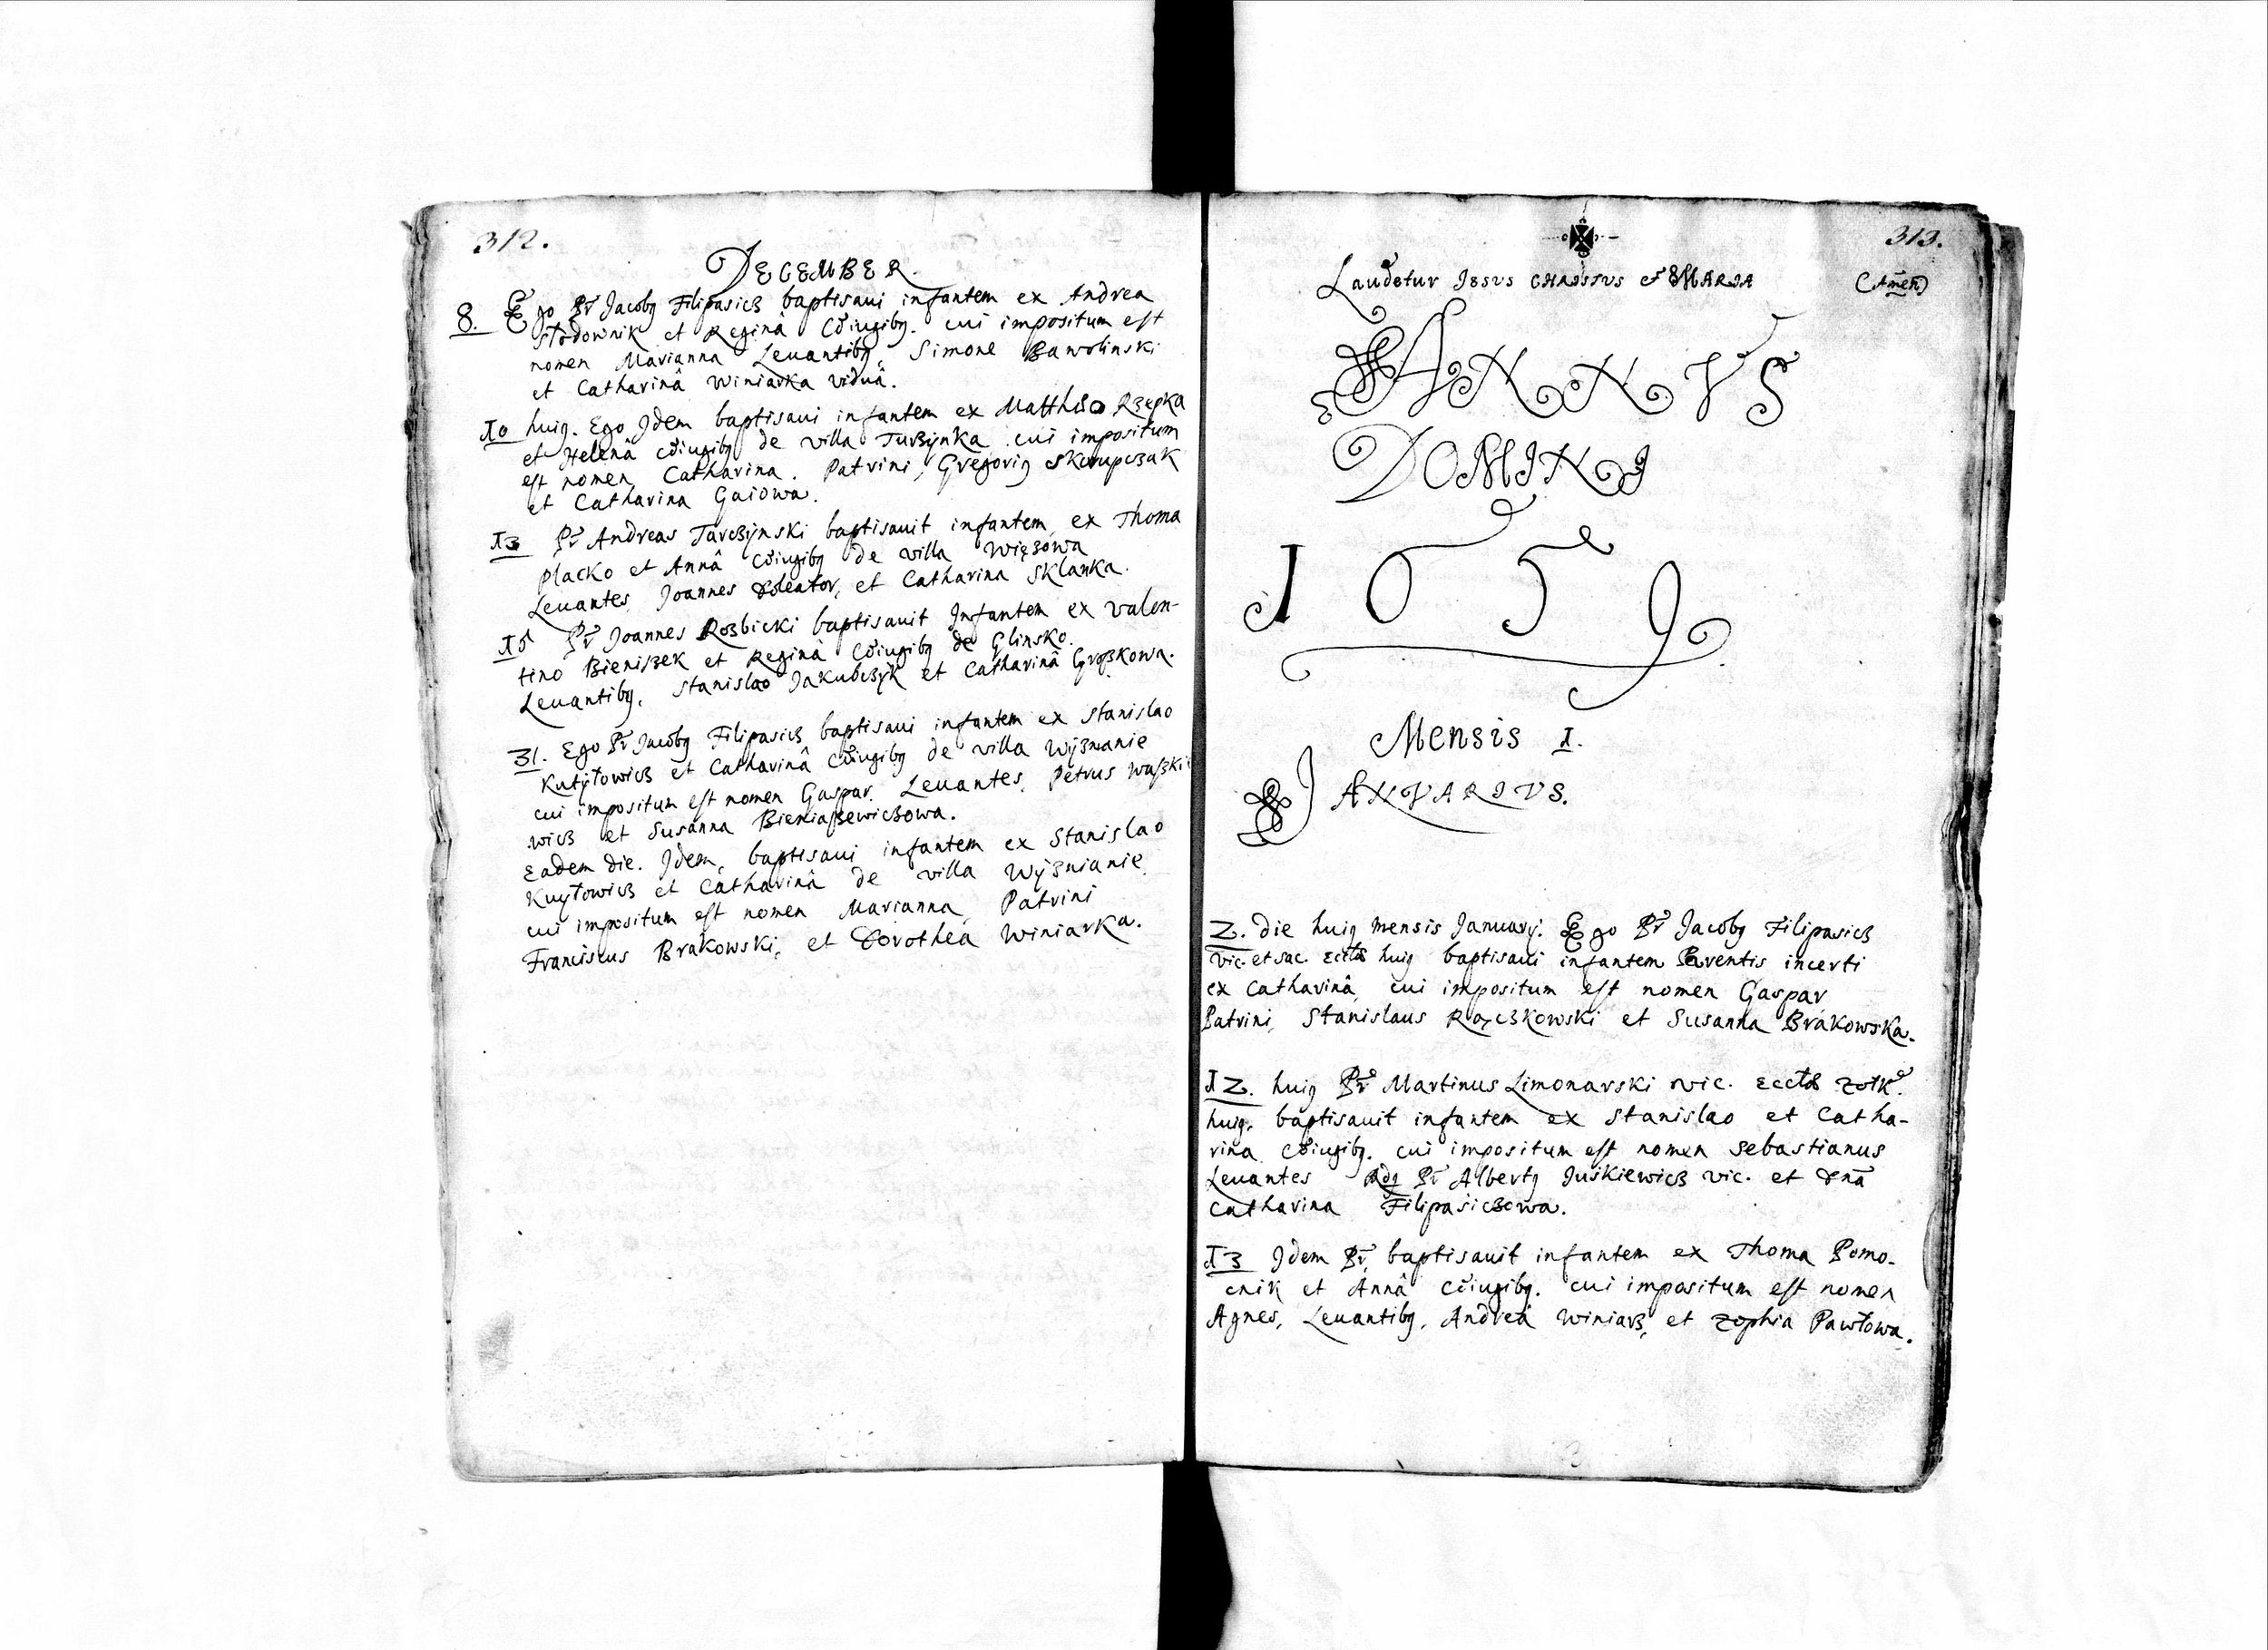 312.
DECEMBER.
8. Ego Pr Jacobꝯ Filipasicz baptisaui infantem ex Andrea
Słodownik et Reginâ Cõiugibꝯ. cui impositum est
nomen Marianna Leuantibꝯ, Simone Bawolinski
et Catharinâ Winiarka viduâ.
10 huiꝯ. Ego Idem baptisaui infantem ex Matthæo Rzepka
et Helenâ cõiugibꝯ de villa Turzynka cui impositum
est nomen Catharina. Patrini, Gregoriꝯ Skorupczak
et Catharina Gaiowa.
13 Pr Andreas Tarczÿnski baptisauit infantem ex Thoma
Placko et Annâ Cõiugibꝯ de villa Więzowa
Leuantes, Joannes Doleator, et Catharina Sklanka.
15 Pr Joannes Rozbicki baptisauit Infantem ex Valen-
tino Bieniszek et Reginâ Cõiugibꝯ de Glinsko.
Leuantibꝯ, Stanislao Jakubczyk et Catharinâ Groszkowa.
31. Ego Pr Jacobꝯ Filipasicz baptisaui infantem ex Stanislao
Kutyłowicz et Catharinâ Cõiugibꝯ de villa Wÿznanie
cui impositum est nomen Gaspar. Leuantes, Petrus Waszkie
wicz et Susanna Bieniaszewiczowa.
Eadem die. Idem, baptisaui infantem ex Stanislao
Kuyłowicz et Catharinâ de villa Wÿznianie
cui impositum est nomen Marianna, Patrini
Franciscus Brakowski, et Dorothea Winiarka.
313.
Laudetur JESVS CHRISTVS et MARIA (Amen)
ANNVS
DOMINI
1659
Mensis I.
JANVARIVS.
2. die huiꝯ mensis Januarÿ. Ego Pr Jacobꝯ Filipasicz
vic. et sac. Eccłæ huiꝯ baptisaui infantem Parentis incerti
ex Catharinâ, cui impositum est nomen Gaspar
Patrini, Stanislaus Rączkowski et Susanna Brakowska.
12. huiꝯ Pr Martinus Limonarski vic. Eccłæ Zołk
huiꝯ. baptisauit infantem ex Stanislao et Catha-
rina Cõiugibꝯ. cui impositum est nomen Sebastianus
Leuantes Rdꝯ Pr Albertꝯ Juśkiewicz vic. et Dnã
Catharina Filipasiczowa.
13 Idem Pr, baptisauit infantem ex Thoma Pomo-
cnik et Annâ Cõiugibꝯ. cui impositum est nomen
Agnes, Leuantibꝯ, Andreâ Winiarz, et Zophia Pawłowa.